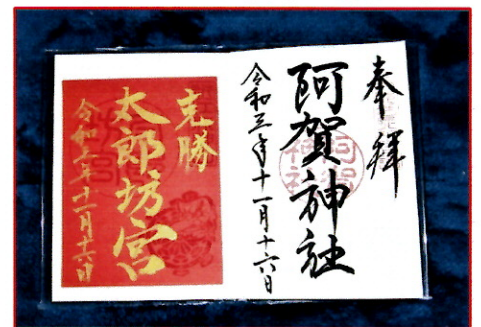 奉拝
阿賀神社
令和三年十一月十六日
勝
太郎坊宮
令和三年十一月十六日